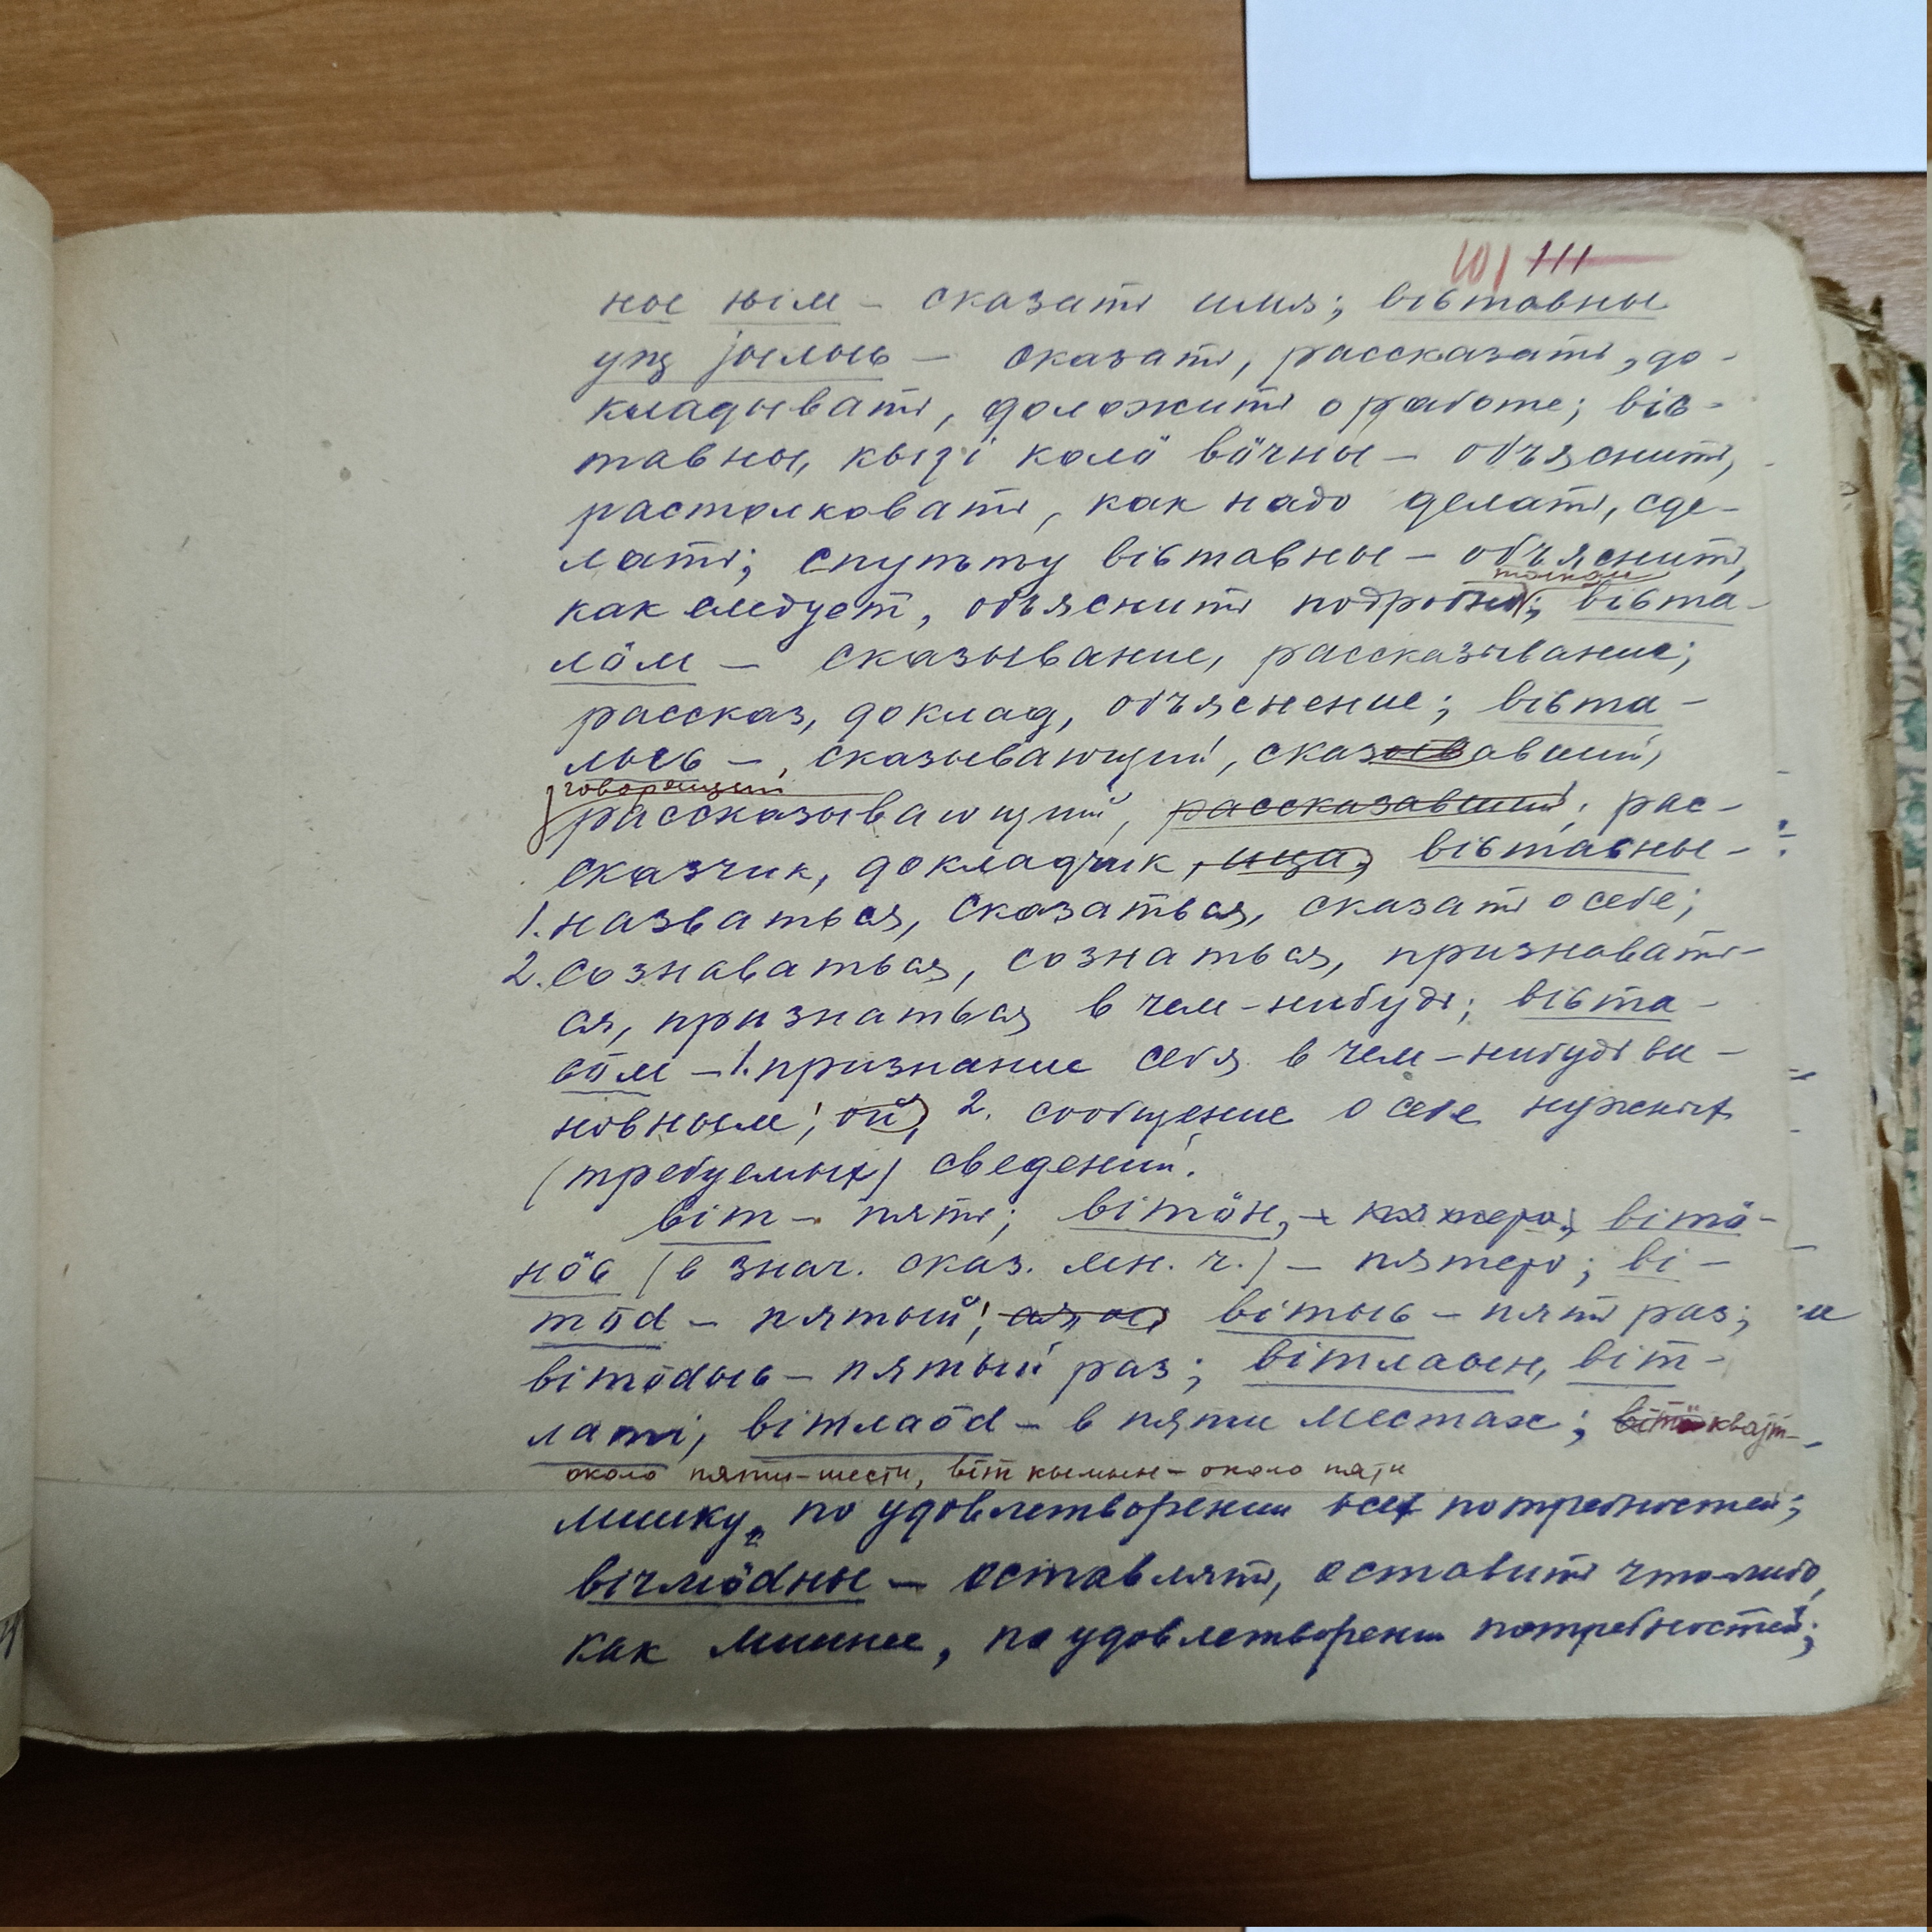 101 111
ныс нім – сказать имя; віԍтавны
уҗ јылыԍ – сказать, рассказать, до-
кладывать, доложить о работе; віԍ-
тавны, кыԅі колӧ вӧчны – объяснить,
растолковать, как надо делать, сде-
лать; спутьту віԍтавны – объяснить,
толком
как следует, объяснить подробно; віԍта-
лӧм – сказывание, рассказывание;
рассказ, доклад, объяснение; віԍта-
лыԍ – сказывающий, сказывавший,
говорящий
рассказывающий, рассказавший; рас-
сказчик, докладчик, -ица; віԍтаԍны –
1. назваться, сказаться, сказать о себе;
2. сознаваться, сознаться, признавать-
ся, признаться в чем-нибудь; віԍта-
ԍӧм – 1. признание себя в чем-нибудь ви-
новным; ой, 2. сообщение о себе нужных
(требуемых) сведений.
віт – пять; вітӧн, – пятеро; вітӧ-
нӧԍ (в знач. сказ. мн. ч.) – пятеро; ві-
тӧd – пятый; ая, ое, вітыԍ – пять раз;
вітӧdыԍ – пятый раз; вітлаын, віт-
латі, вітлаӧd – в пяти местах; віт квајт –
около пяти-шести, віт кымын – около пяти
лишку, по удовлетворении всех потребностей;
вічмӧdны – оставлять, оставить что-либо,
как лишнее, по удовлетворении потребностей;